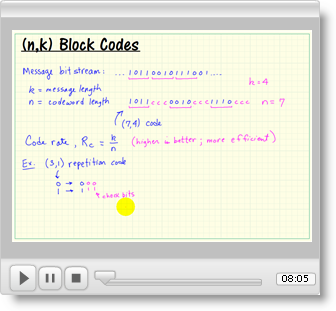 (n,k) Block Codes
Message bit stream: ... 1011001011001 ...
k = message length
k=4
n = codeword length
1011ccc0010ccc1110ccc
n=7
(7,4) code
Code rate, Rc = k/n (higher is better; more efficient)
Ex. (3,1) repetition code
0 → 0 0 0
1 → 1 1 1
check bits
08:05